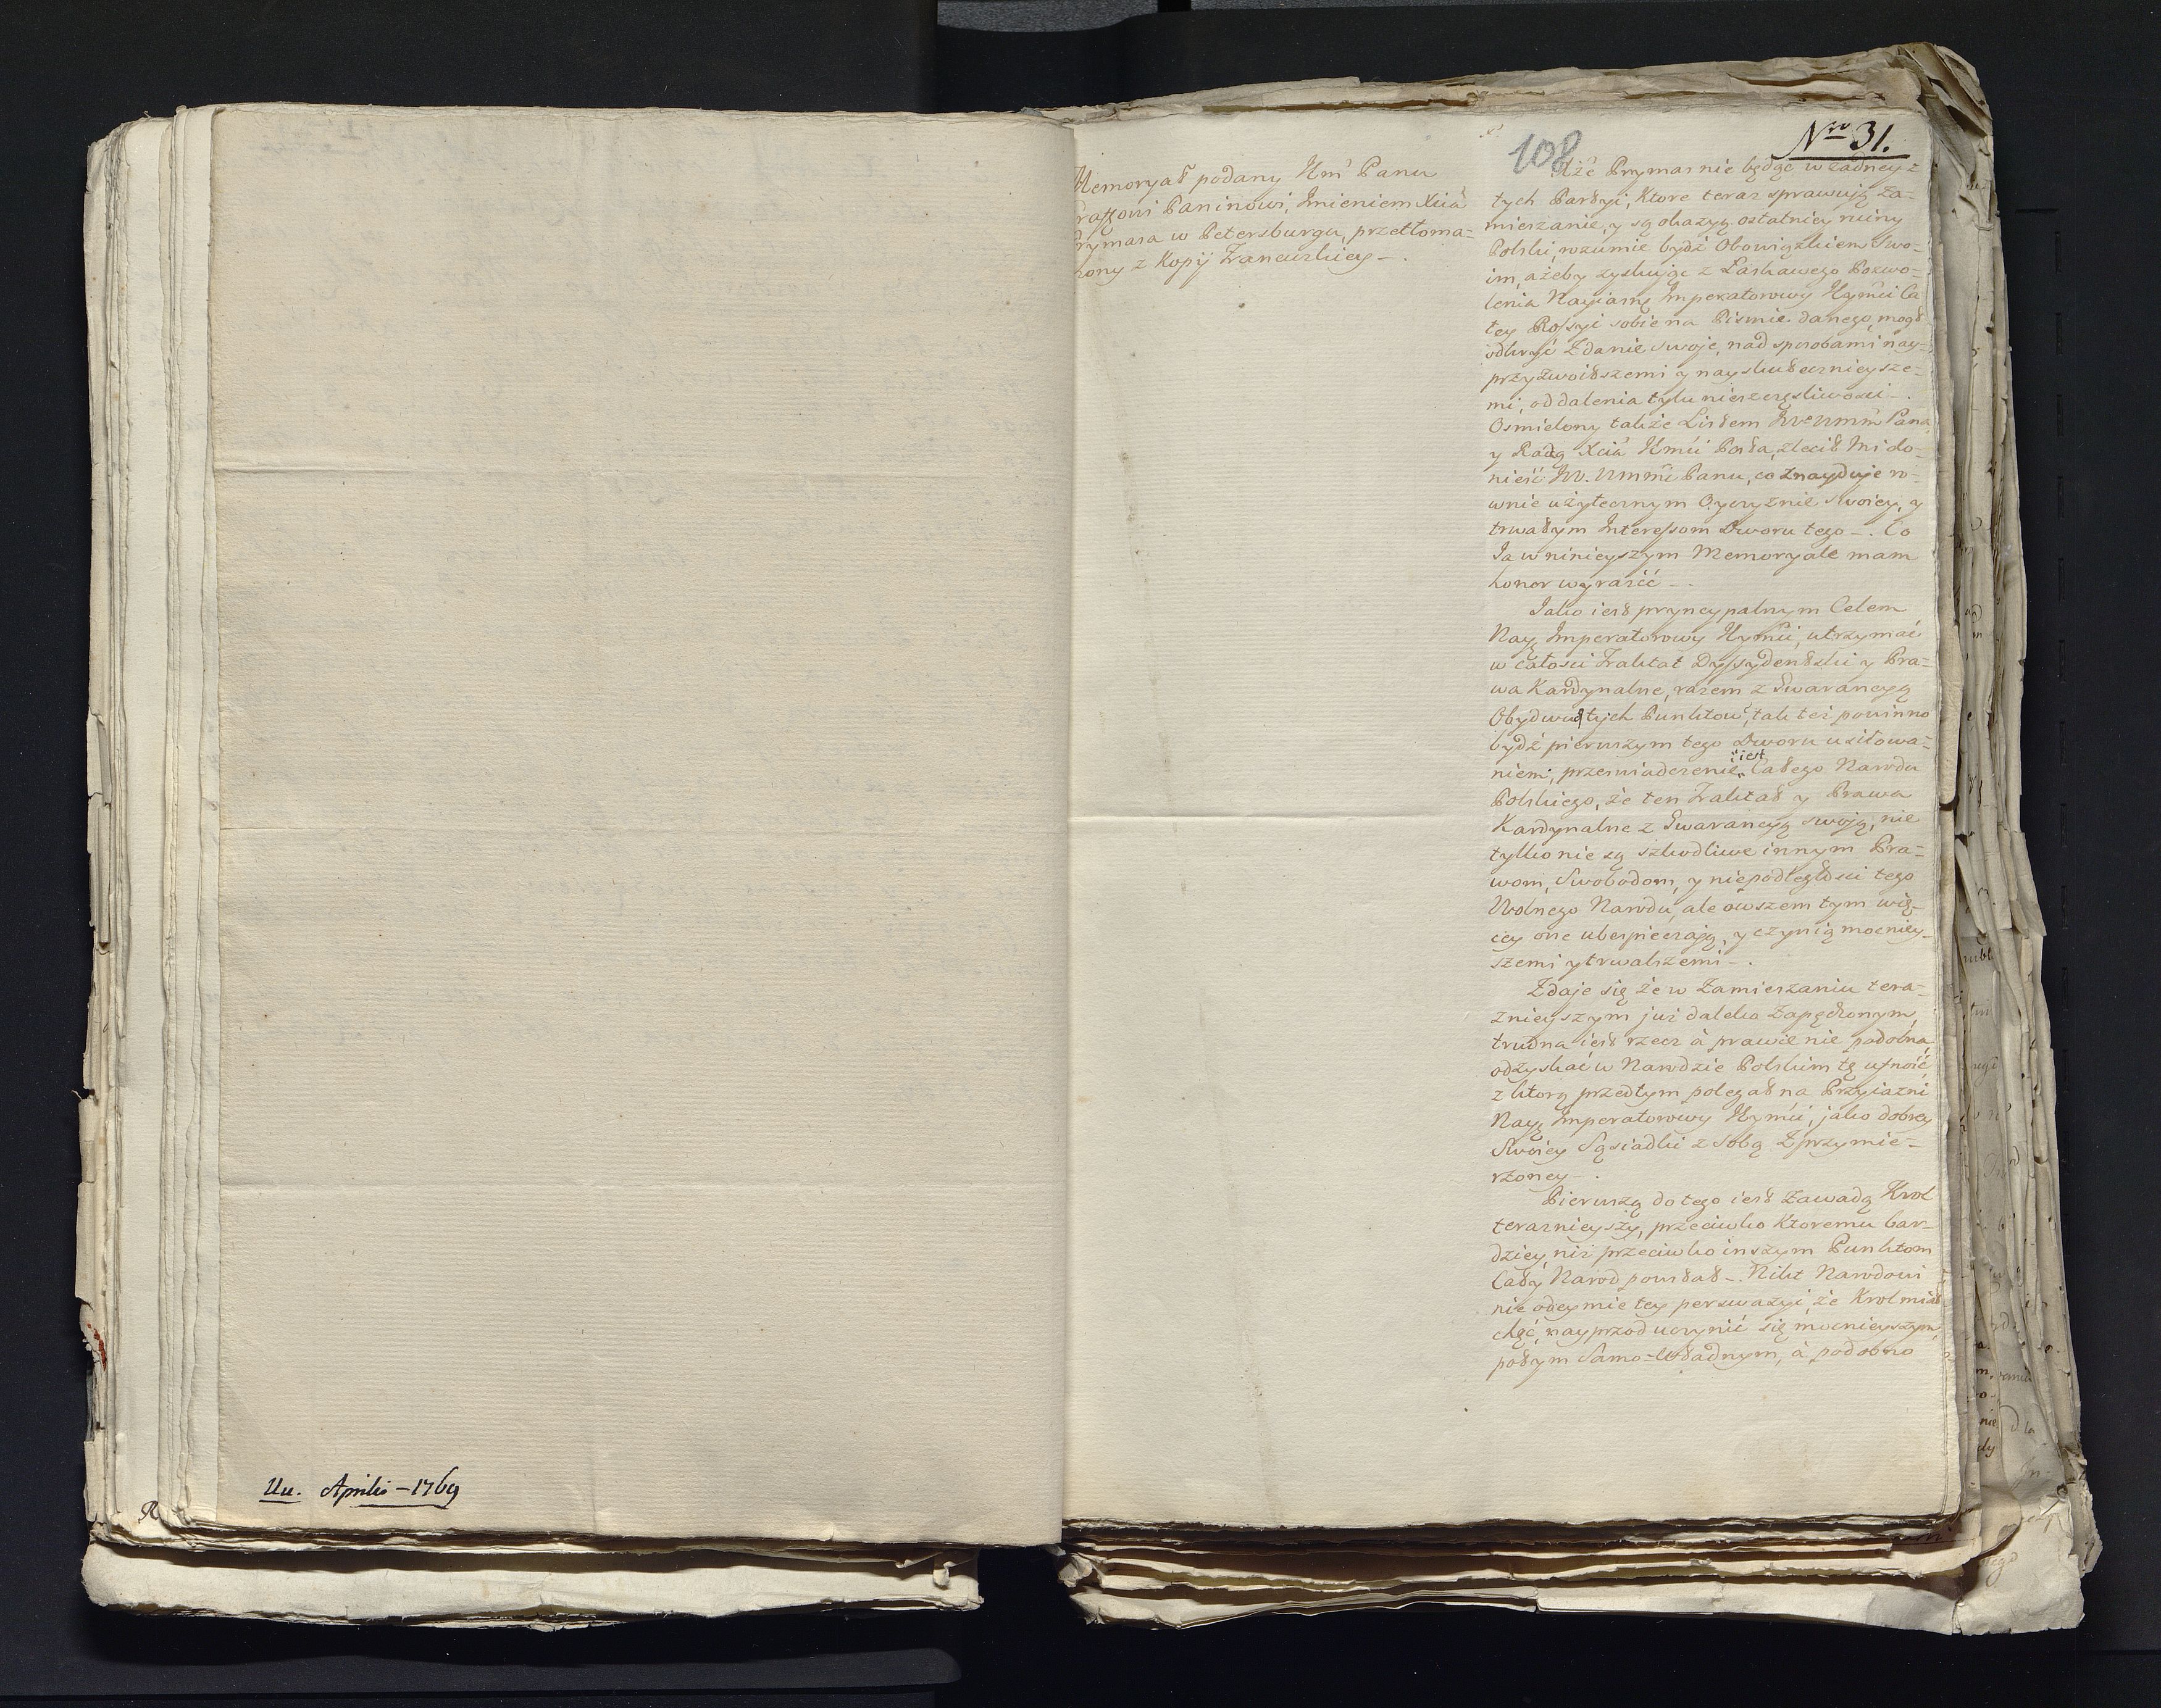 Uu. Aprilis – 1769
108
Nro 31.
Memoryał podany Jmć Panu
Graffowi Paninowi, Jmieniem Xcia
Prymasa w Petersburgu, przetłoma=
czony z Kopij Francuzkiey –.
Xże Prymas nie będąc w żadney z
tych Partyi, Ktore teraz sprawują za=
mieszanie, y są okazyą ostatniey ruiny
Polski, rozumie bydź Obowiązkiem Swo=
im, ażeby zyskując z Łaskawego Pozwo=
lenia Nayiasnę Imperatorowy Jeymći Ca
łey Rossyi sobie na Pismie danego, mogł
odkryć Zdanie swoje, nad sposobami nay=
przyzwoitszemi y nayskutecznieysze=
mi, oddalenia tylu nieszczęsliwosci –.
Osmielony także Listem JWWmm Pana
y Radą Xcia Jmći Posła, zlecił Mi do=
nieść JW. Wmmći Panu, co Znayduje ro=
wnie użytecznym Oyczyznie swoiey, y
trwałym Interessom Dworu tego –. Co
Ja w ninieyszym Memoryale mam
honor wyrazić –.
Jako iest pryncypalnym Celem
Nayę Imperatorowy Jeymći, utrzymać
w całosci Traktat Dyssydentski y Pra=
wa Kardynalne, razem z Gwarancyą
Obydwuch tych Punktow, tak też powinno
bydź pierwszym tego Dworu usiłowa=
niem, przeswiadczenie iest Całego Narodu
Polskiego, że ten Traktat y Prawa
Kardynalne z Gwarancyą swoją, nie
tylko nie są szkodliwe innym Pra=
wom, Swobodom, y niepodległosci tego
Wolnego Narodu, ale owszem tym wię=
cey one ubespieczają, y czynią mocniey=
szemi y trwalszemi –.
Zdaje się że w Zamieszaniu tera=
znieyszym już daleko Zapędzonym,
trudna iest rzecz à prawie nie podobna,
odzyskać w Narodzie Polskim tę ufność,
z ktorą przedtym polegał na Przyiazni
Nayę Imperatorowy Jeymći, jako dobrey
Swoiey Sąsiadki z Sobą Zprzymie=
rzoney –.
Pierwszą do tego iest Zawadą Krol
teraznieyszy, przeciwko Ktoremu bar=
dziey, niż przeciwko inszym Punktom
Cały Narod powstał –. Nikt Narodowi
nie odeymie tey perswazyi, że Krol miał
chęć, nayprzod uczynić się mocnieyszym,
potym Samo=Władnym, à podobno